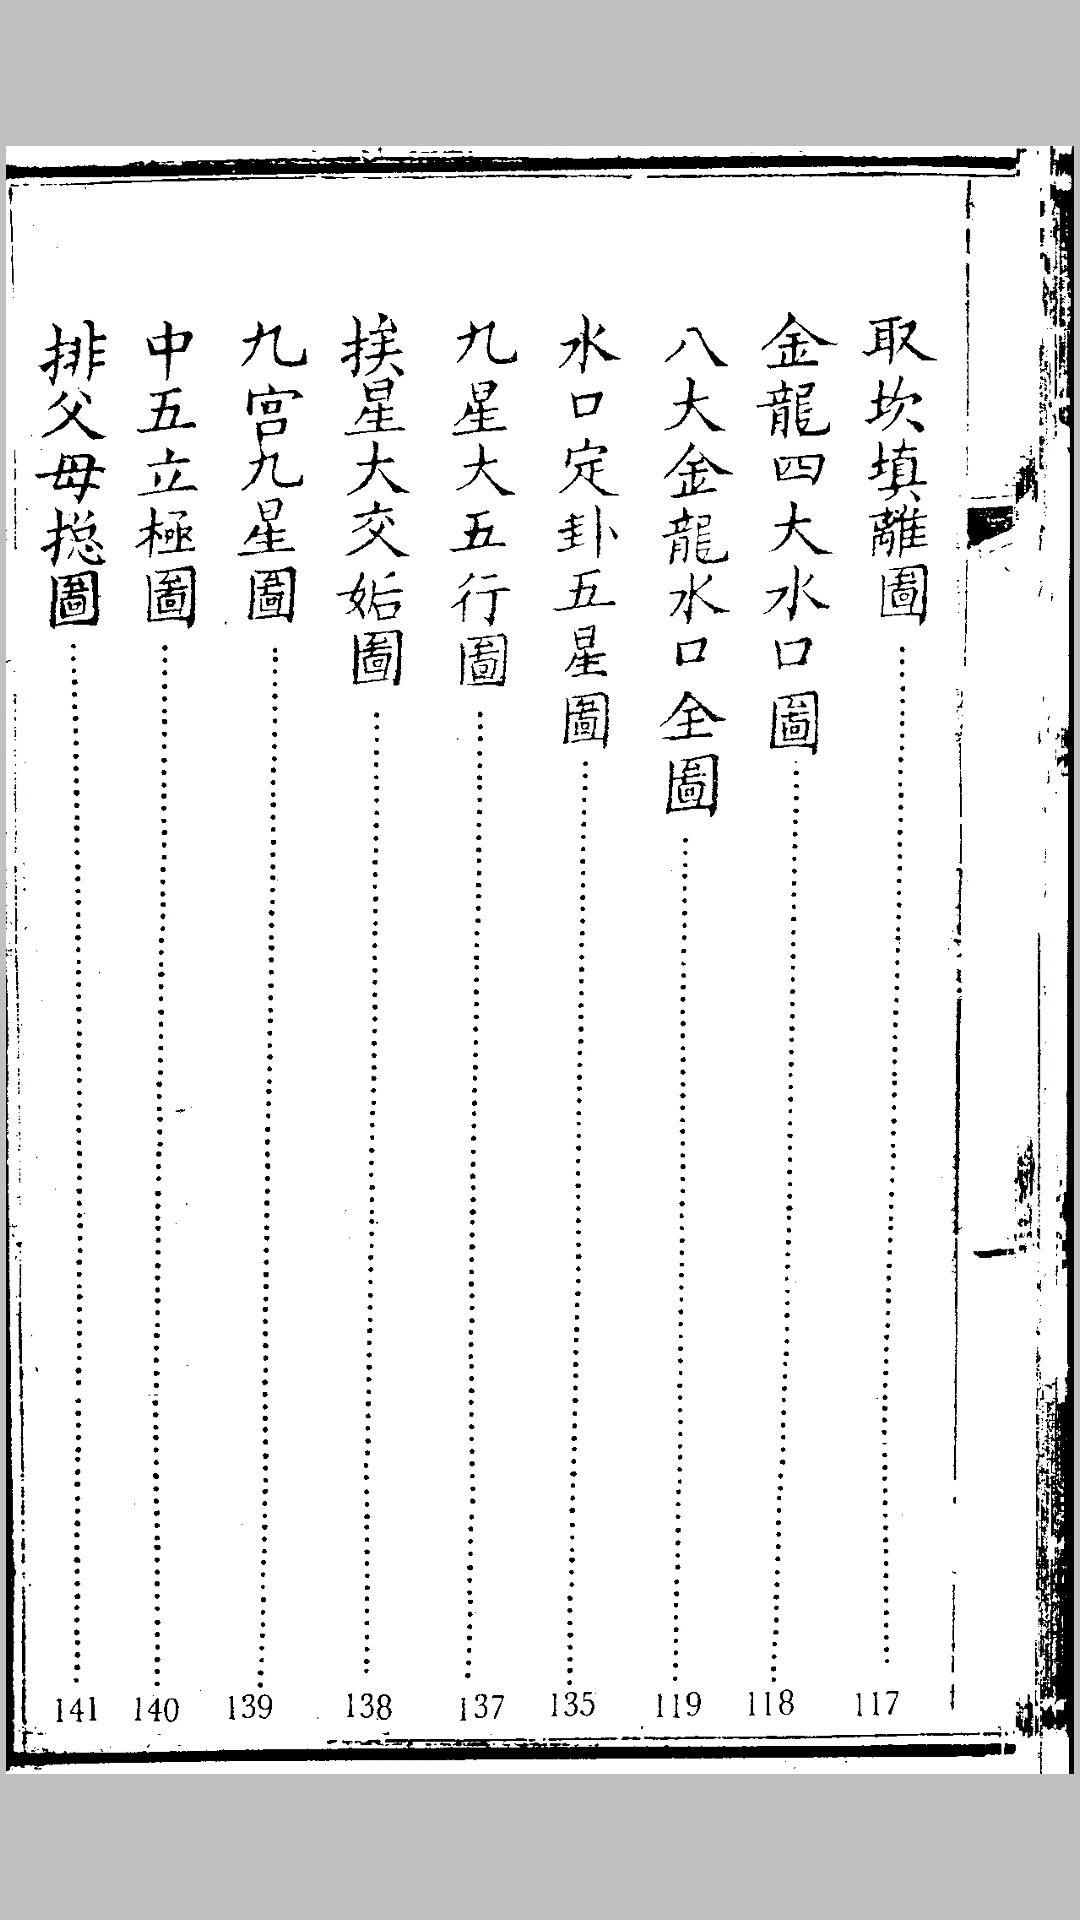 取坎填離圖 117
金龍四大水口圖 118
八大金龍水口全圖 119
水口定卦五星圖 135
九星大五行圖 137
挨星大交姤圖 138
九宮九星圖 139
中五立極圖 140
排父母捴圖 141